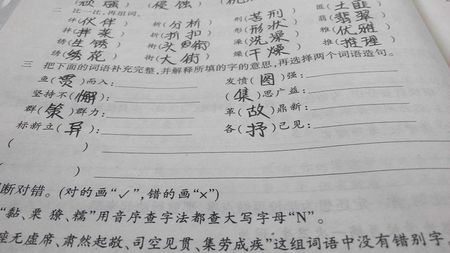 二 比一比,再组词。
伙伴 析(分析) 刑(苦刑) 匪(土匪)
拌(拌菜) 折(折扣) 形(形状) 翡(翡翠)
锈(生锈) 澡(洗澡) 雅(优雅)
绣(绣花) 街(大街) 燥(干燥) 推(推理)
三 把下面的词语补充完整,并解释所填的字的意思,再选择两个词语造句。
鱼(贯)而入: 发愤(图)强:
坚持不(懈): (集)思广益:
群(策)群力: 革(故)鼎新:
标新立(异): 各(抒)己见:
( )
( )
断对错。(对的画“✓”,错的画“×”)
“黏、果、獠、糯”用音序查字法都查大写字母“N”。
座无虚席、肃然起敬、司空见贯、集劳成疾”这组词语中没有错别字。